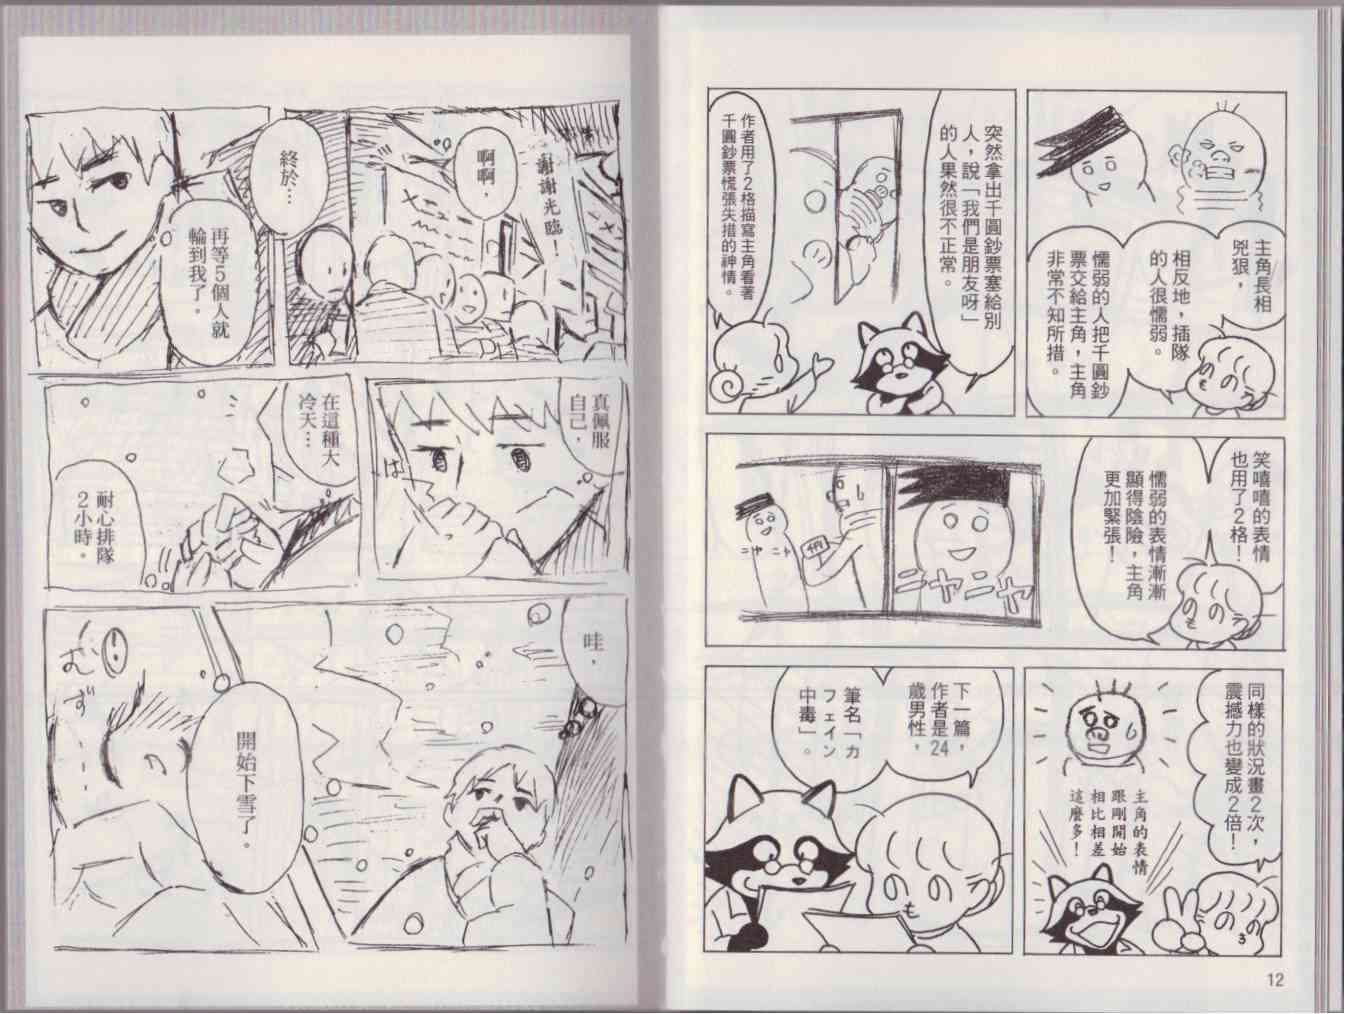 主角長相
兇狠，
相反地，插隊
的人很懦弱。
懦弱的人把千圓鈔
票交給主角，主角
非常不知所措。
突然拿出千圓鈔票塞給別
人，說「我們是朋友呀」
的人果然很不正常。
作者用了2格描寫主角看著
千圓鈔票慌張失措的神情。
笑嘻嘻的表情
也用了2格！
懦弱的表情漸漸
顯得陰險，主角
更加緊張！
ニヤニヤ
ニヤ ニヤ
同樣的狀況畫2次，
震撼力也變成2倍！
主角的表情
跟剛開始
相比相差
這麼多！
下一篇，
作者是24
歲男性，
筆名「カ
フェイン
中毒」。
12
謝謝光臨！
啊啊，
終於…
再等5個人就
輪到我了。
真佩服
自己，
は
在這種大
冷天…
耐心排隊
2小時。
哇，
開始下雪了。
むず